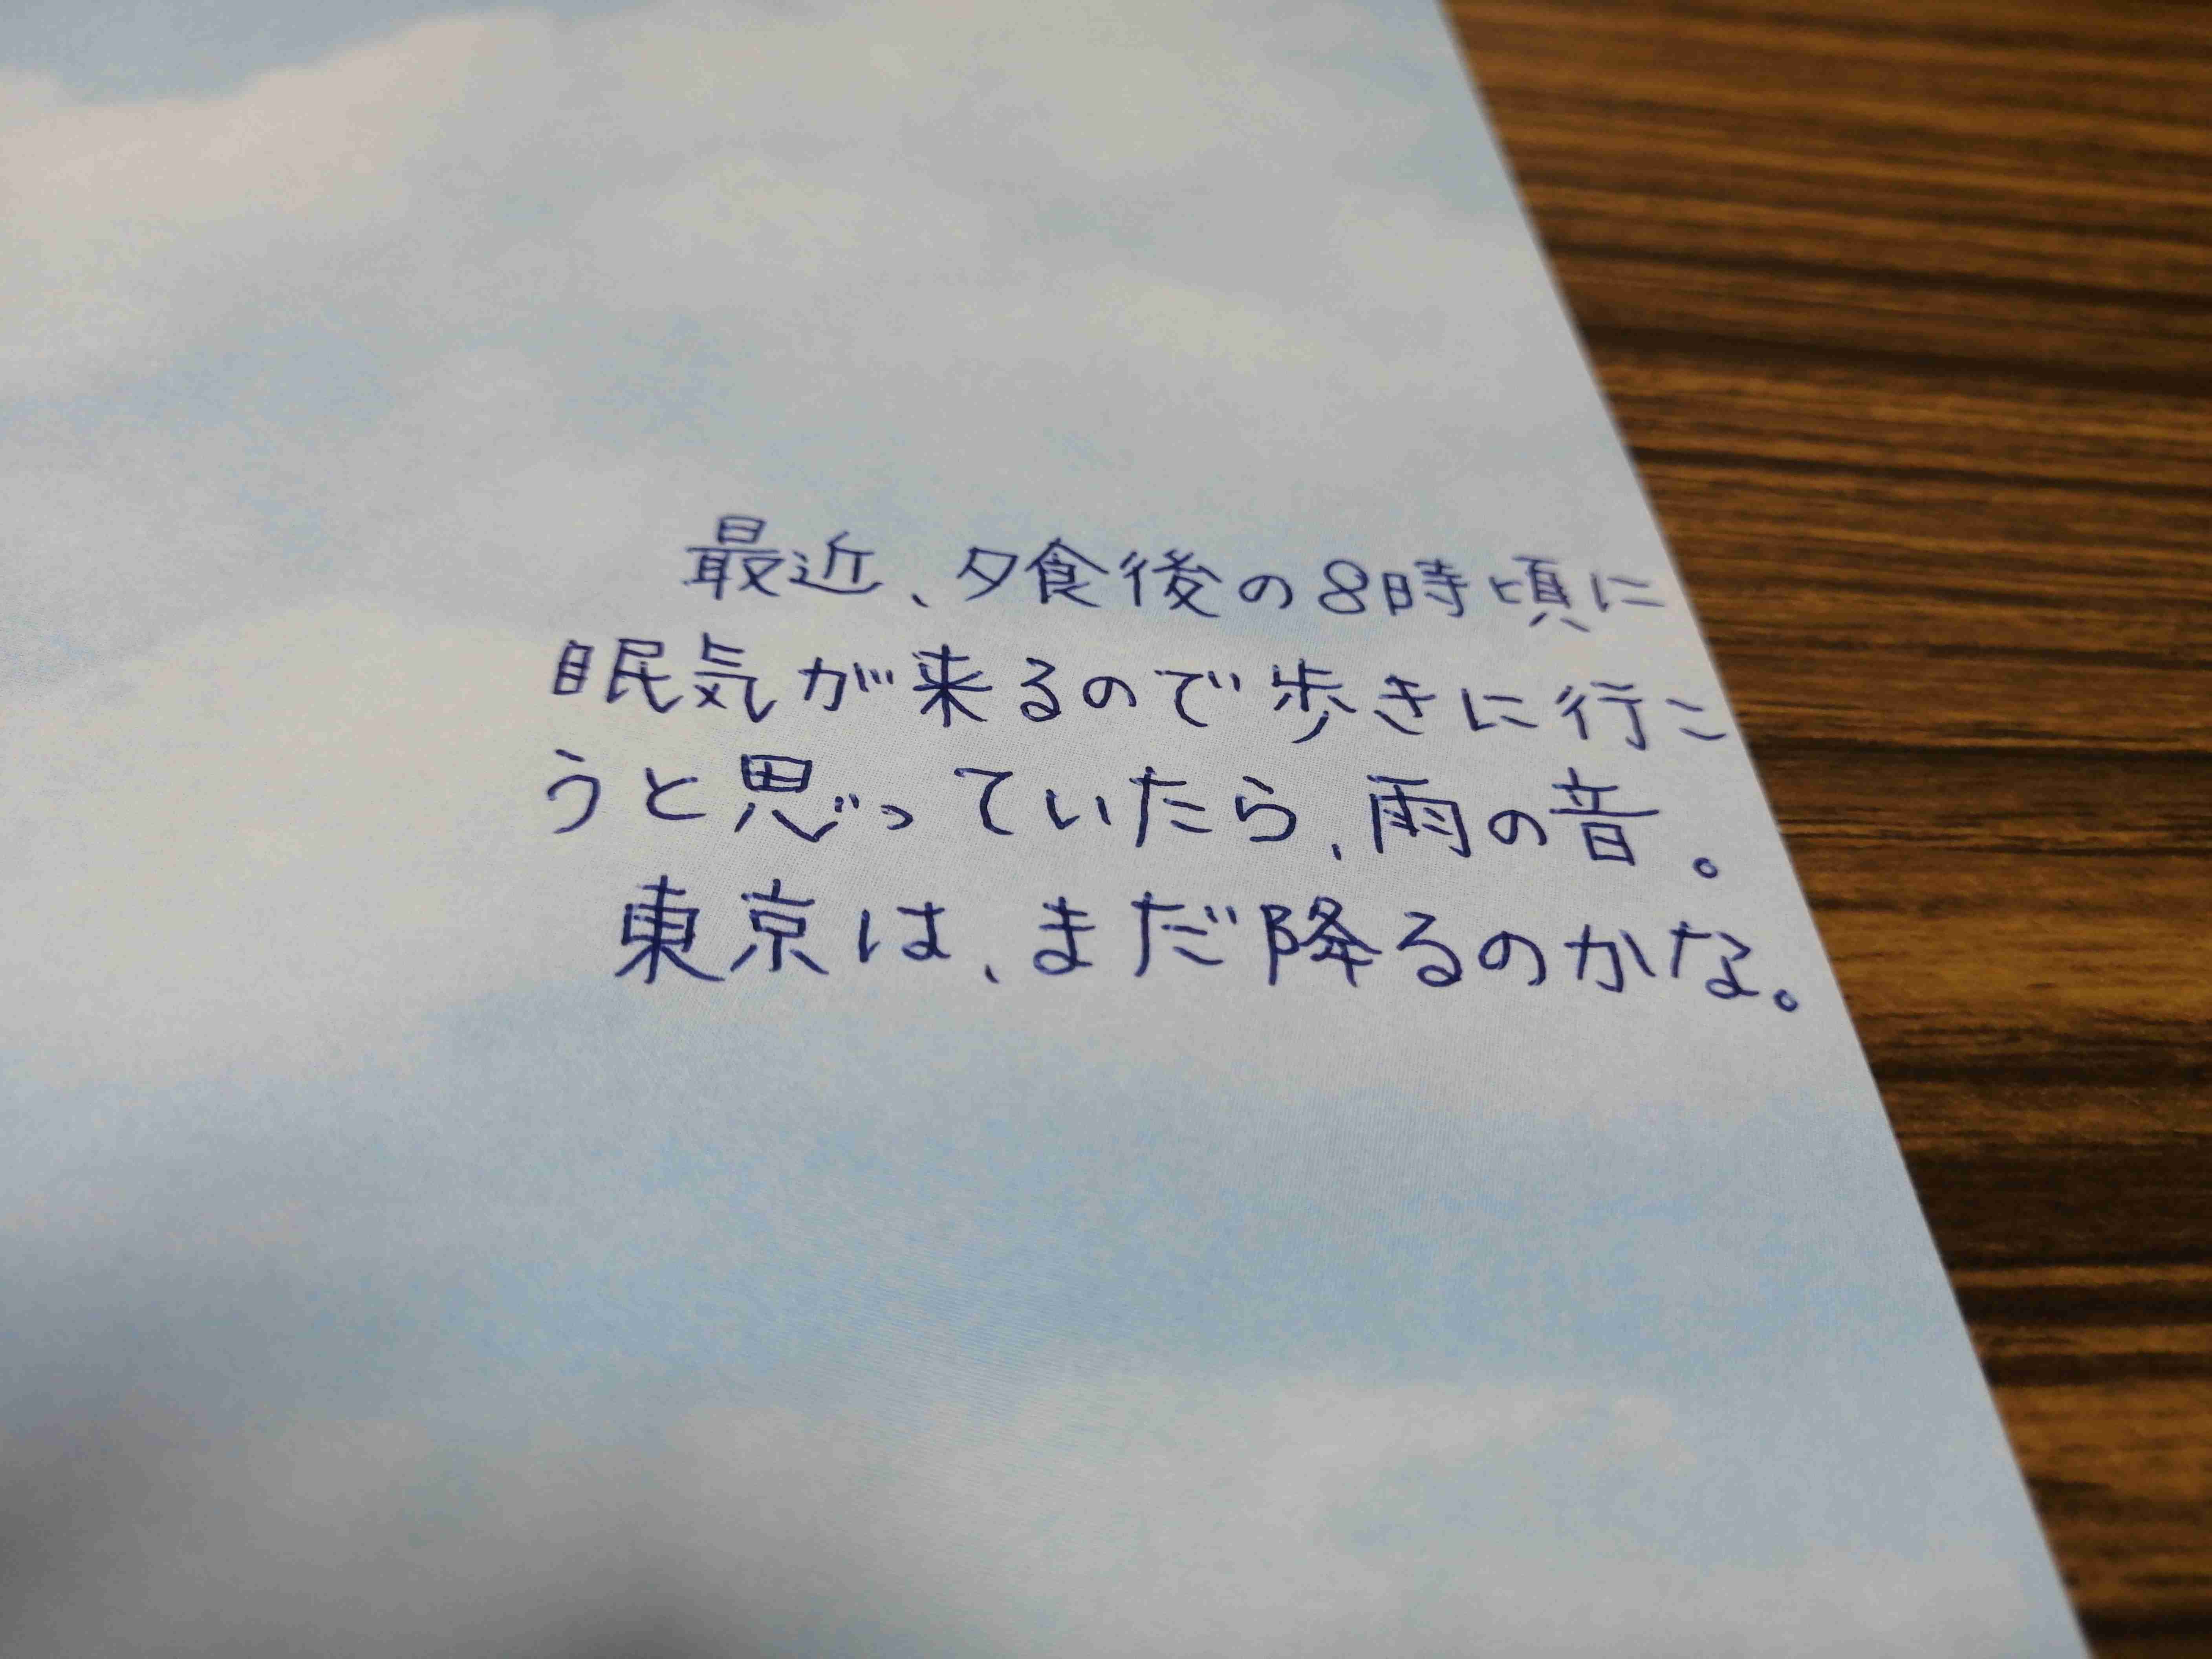 最近、夕食後の8時頃に
眠気が来るので歩きに行こ
うと思っていたら、雨の音。
東京は、まだ降るのかな。